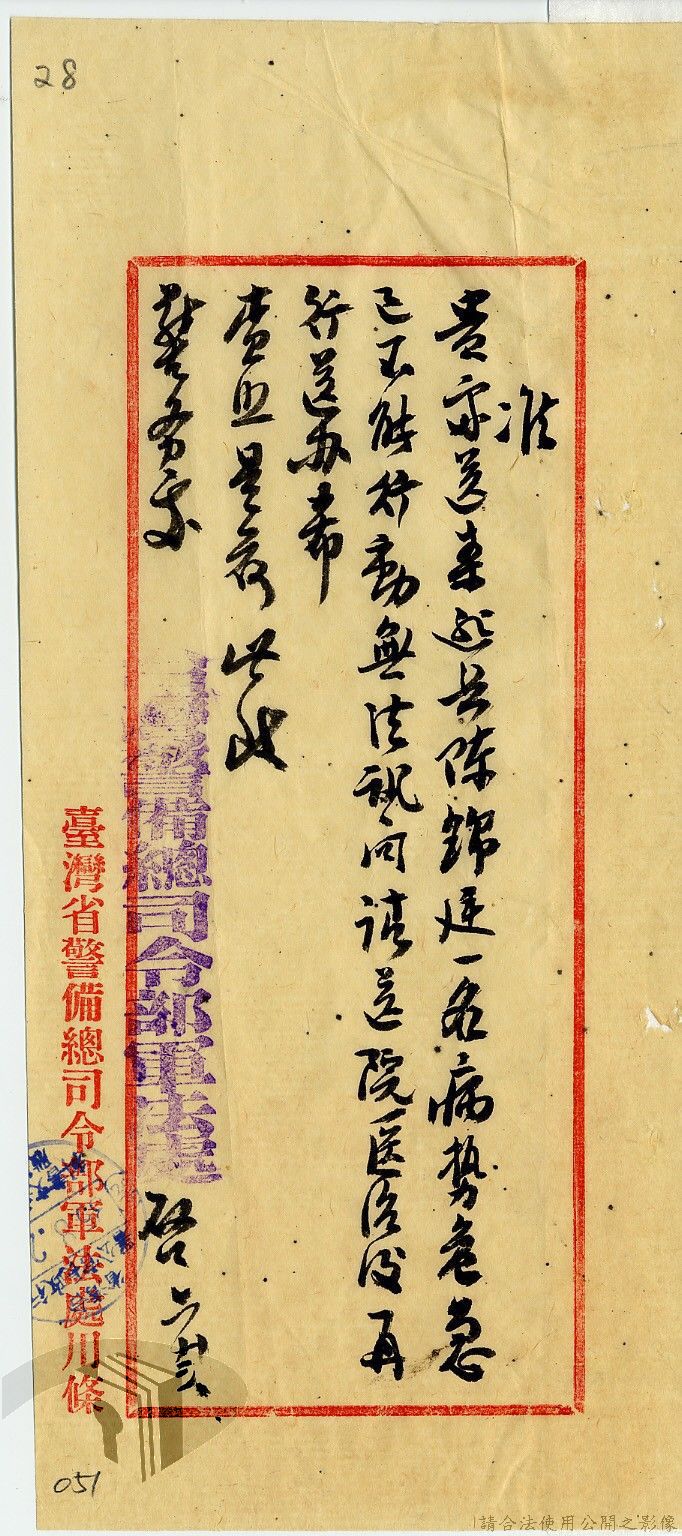 28
准
貴室送來逃兵陳錦廷一名病势危急
已不能行動無法訊问請送院医治後再
行送办希
查照是荷此致
警务室
臺灣省警備總司令部軍法處
啓
臺灣省警備總司令部軍法處用條
051
請合法使用公開之影像